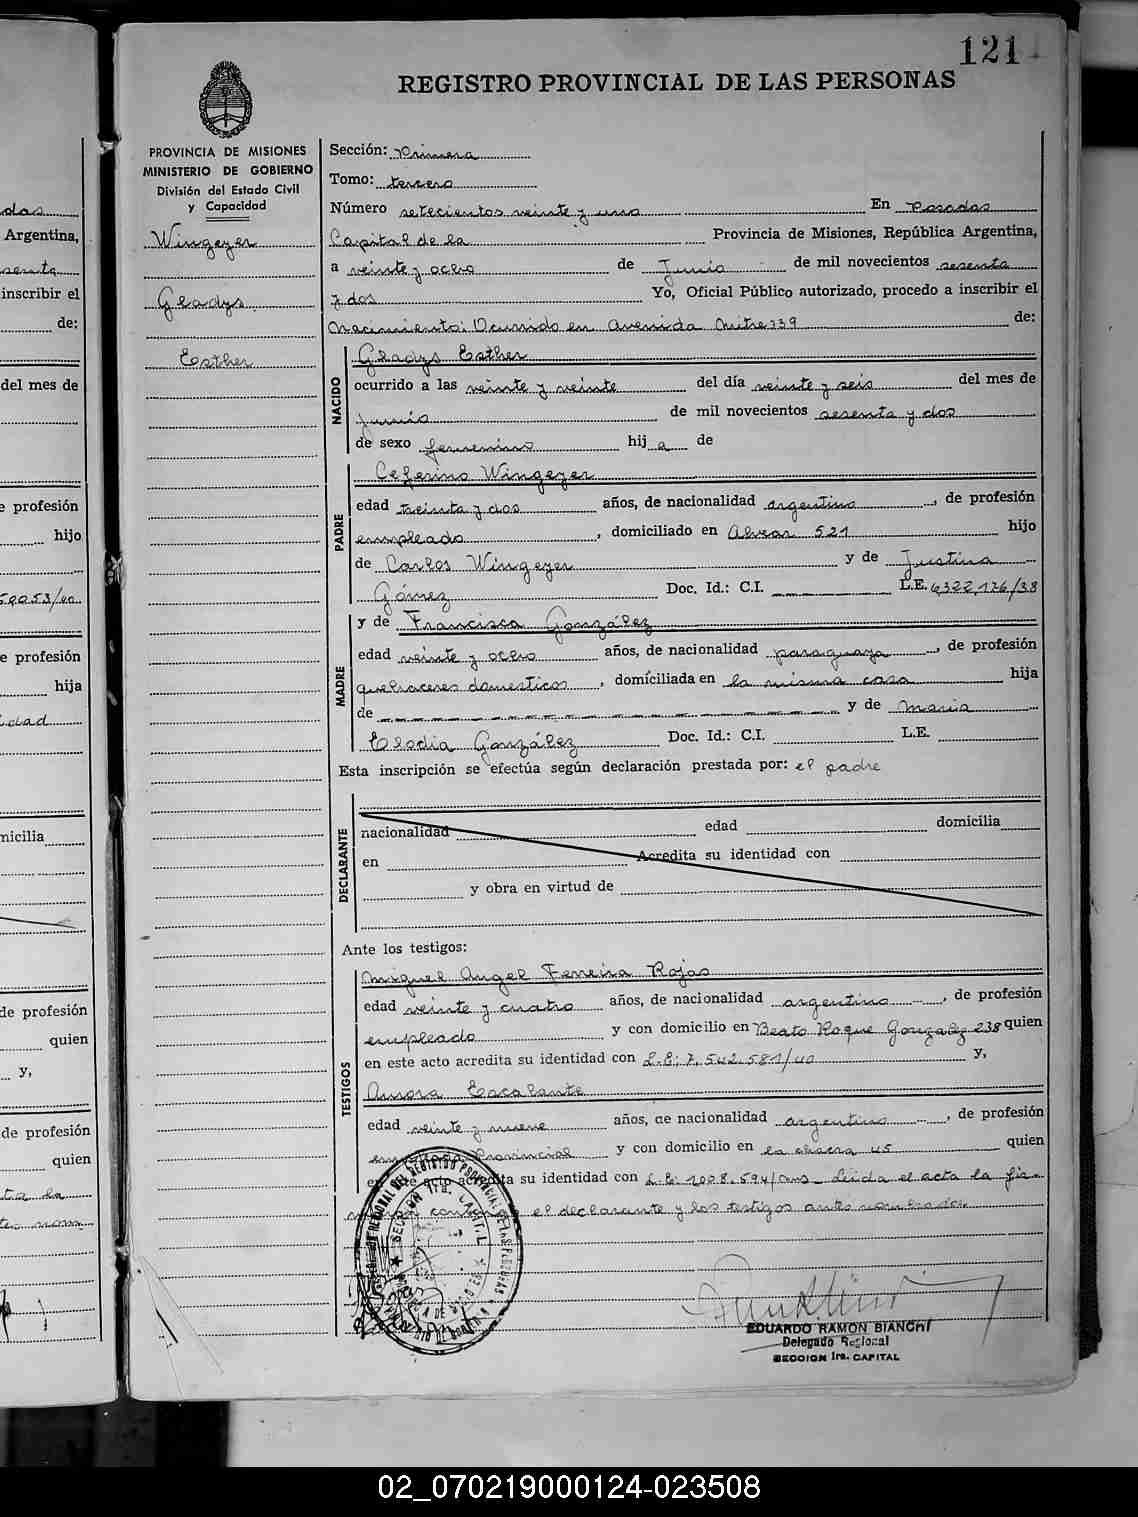 121
REGISTRO PROVINCIAL DE LAS PERSONAS
PROVINCIA DE MISIONES
MINISTERIO DE GOBIERNO
División del Estado Civil
y Capacidad
Wingeyer
Gladys
Esther
Sección: Primera
Tomo: tercero
Número setecientos veinte y uno En Posadas
Capital de la Provincia de Misiones, República Argentina,
a veinte y ocho de Junio de mil novecientos sesenta
y dos Yo, Oficial Público autorizado, procedo a inscribir el
Nacimiento: Ocurrido en Avenida Mitre 739 de:
NACIDO
Gladys Esther
ocurrido a las veinte y veinte del día veinte y seis del mes de
junio de mil novecientos sesenta y dos
de sexo femenino hij a de
PADRE
Ceferino Wingeyer
edad treinta y dos años, de nacionalidad argentino, de profesión
empleado, domiciliado en Alvear 521 hijo
de Carlos Wingeyer y de Justina
Gómez Doc. Id.: C.I. L.E. 6322,176/38
MADRE
y de Francisca González
edad veinte y ocho años, de nacionalidad paraguaya, de profesión
quehaceres domesticos, domiciliada en la misma casa hija
de y de Maria
Elodia González Doc. Id.: C.I. L.E.
Esta inscripción se efectúa según declaración prestada por: el padre
DECLARANTE
nacionalidad edad domicilia
en Acredita su identidad con
y obra en virtud de
Ante los testigos:
TESTIGOS
Miguel Angel Ferreira Rojas
edad veinte y cuatro años, de nacionalidad argentino, de profesión
empleado y con domicilio en Beato Roque Gonzalez 238 quien
en este acto acredita su identidad con L.E: 7.542.581/40 y,
Amora Escalante
edad veinte y nueve años, de nacionalidad argentino, de profesión
Provincial y con domicilio en la chacra 45 quien
en este acto acredita su identidad con Leida el acta la fir-
el declarante y los testigos antes nombrados
EDUARDO RAMON BIANCHI
Delegado Regional
SECCION 1ra. CAPITAL
02_070219000124-023508